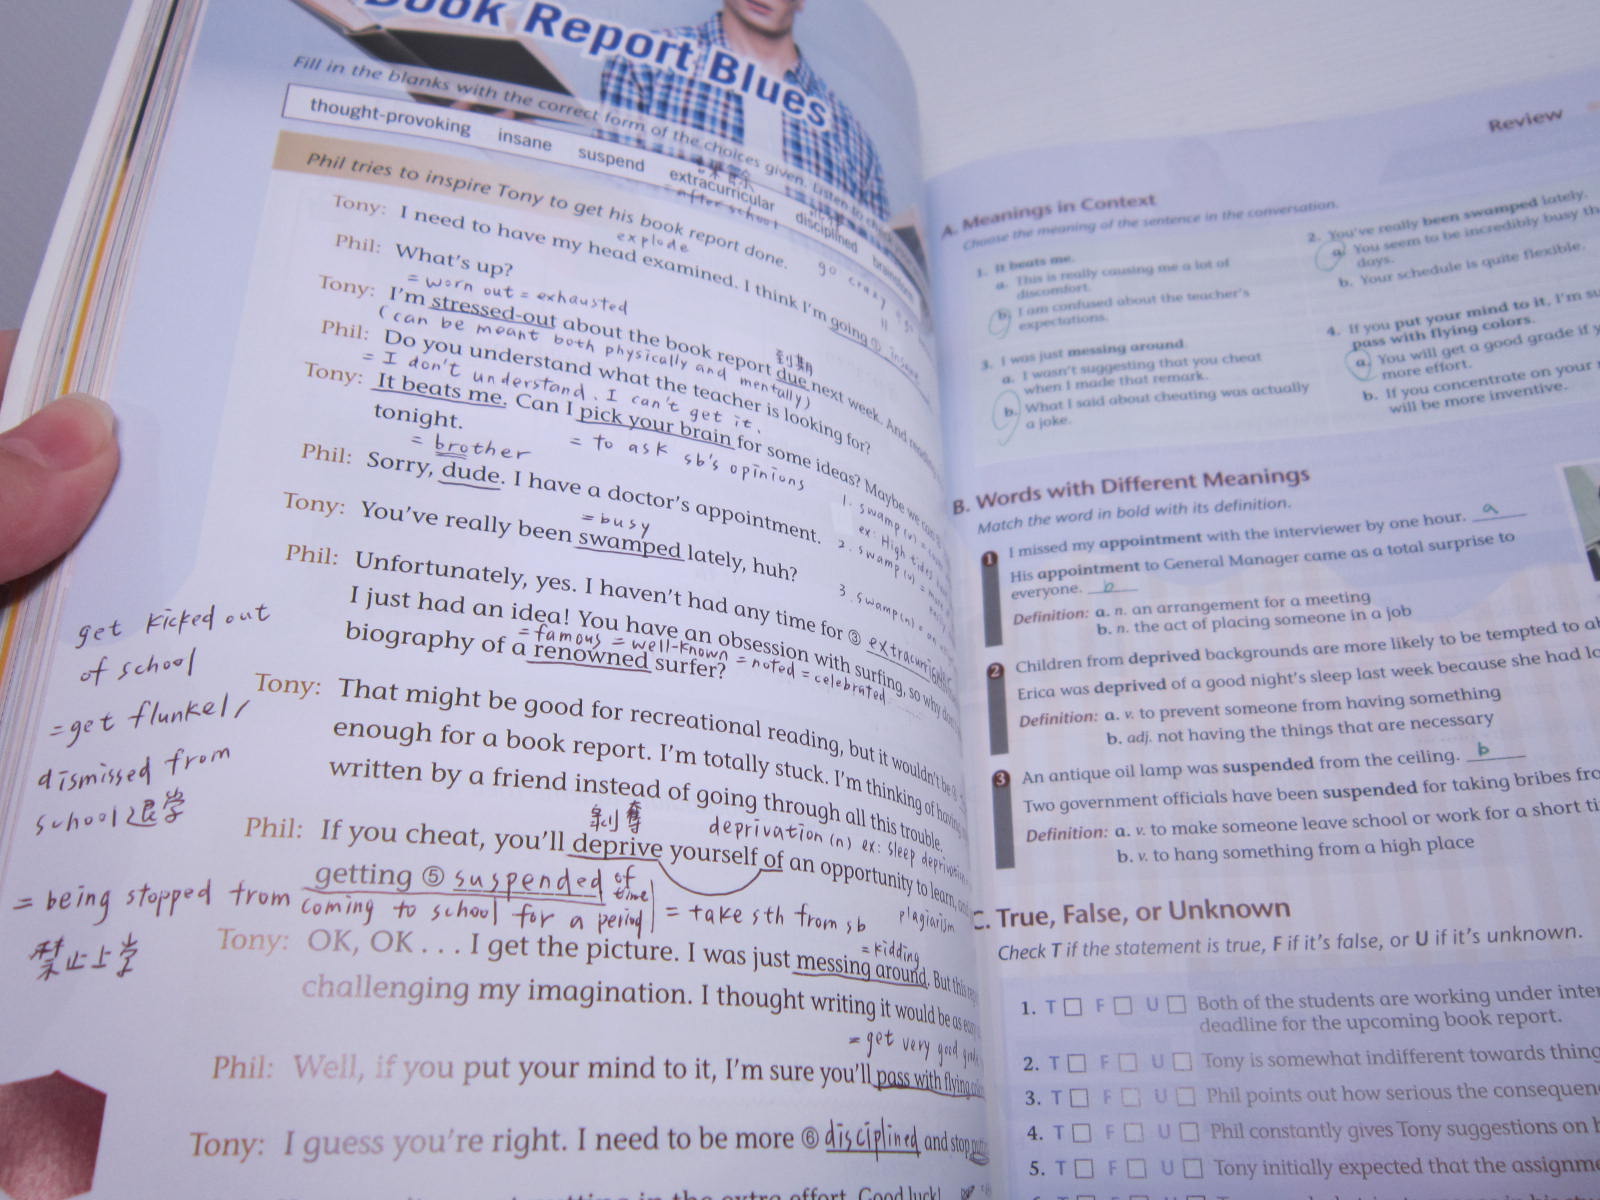 Book Report Blues
Fill in the blanks with the correct form of the choices given. Listen to check
thought-provoking insane suspend extracurricular disciplined
= after school
Phil tries to inspire Tony to get his book report done.
explode
go crazy
Tony: I need to have my head examined. I think I'm going ① insane
Phil: What's up?
= worn out = exhausted
Tony: I'm stressed-out about the book report due next week. And
到期
(can be meant both physically and mentally)
Phil: Do you understand what the teacher is looking for?
= I don't understand. I can't get it.
Tony: It beats me. Can I pick your brain for some ideas? Maybe we
tonight.
= brother
= to ask sb's opinions
Phil: Sorry, dude. I have a doctor's appointment.
= busy
Tony: You've really been swamped lately, huh?
1. swamp (v) =
ex: High tides
2. swamp (v) =
3. swamp (n) =
Phil: Unfortunately, yes. I haven't had any time for ③ extracurricular
I just had an idea! You have an obsession with surfing, so why
= famous = well-known = noted = celebrated
biography of a renowned surfer?
Tony: That might be good for recreational reading, but it wouldn't be
enough for a book report. I'm totally stuck. I'm thinking of having
written by a friend instead of going through all this trouble.
剝奪
deprivation (n) ex: sleep deprivation
Phil: If you cheat, you'll deprive yourself of an opportunity to learn,
getting ⑤ suspended
= being stopped from coming to school for a period of time
禁止上学
= take sth from sb
plagiarism
get kicked out
of school
= get flunked /
dismissed from
school 退学
= kidding
Tony: OK, OK . . . I get the picture. I was just messing around. But this
challenging my imagination. I thought writing it would be as easy
= get very good
Phil: Well, if you put your mind to it, I'm sure you'll pass with flying
Tony: I guess you're right. I need to be more ⑥ disciplined and stop
in the extra effort. Good luck!
Review
A. Meanings in Context
Choose the meaning of the sentence in the conversation.
1. It beats me.
a. This is really causing me a lot of
discomfort.
b. I am confused about the teacher's
expectations.
2. You've really been swamped lately.
a. You seem to be incredibly busy
days.
b. Your schedule is quite flexible.
3. I was just messing around.
a. I wasn't suggesting that you cheat
when I made that remark.
b. What I said about cheating was actually
a joke.
4. If you put your mind to it, I'm
pass with flying colors.
a. You will get a good grade if
more effort.
b. If you concentrate on your
will be more inventive.
B. Words with Different Meanings
Match the word in bold with its definition.
1 I missed my appointment with the interviewer by one hour. a
His appointment to General Manager came as a total surprise to
everyone. b
Definition: a. n. an arrangement for a meeting
b. n. the act of placing someone in a job
2 Children from deprived backgrounds are more likely to be tempted to
Erica was deprived of a good night's sleep last week because she had
Definition: a. v. to prevent someone from having something
b. adj. not having the things that are necessary
3 An antique oil lamp was suspended from the ceiling. b
Two government officials have been suspended for taking bribes
Definition: a. v. to make someone leave school or work for a short
b. v. to hang something from a high place
C. True, False, or Unknown
Check T if the statement is true, F if it's false, or U if it's unknown.
1. T F U Both of the students are working under
deadline for the upcoming book report.
2. T F U Tony is somewhat indifferent towards
3. T F U Phil points out how serious the
4. T F U Phil constantly gives Tony suggestions on
5. T F U Tony initially expected that the